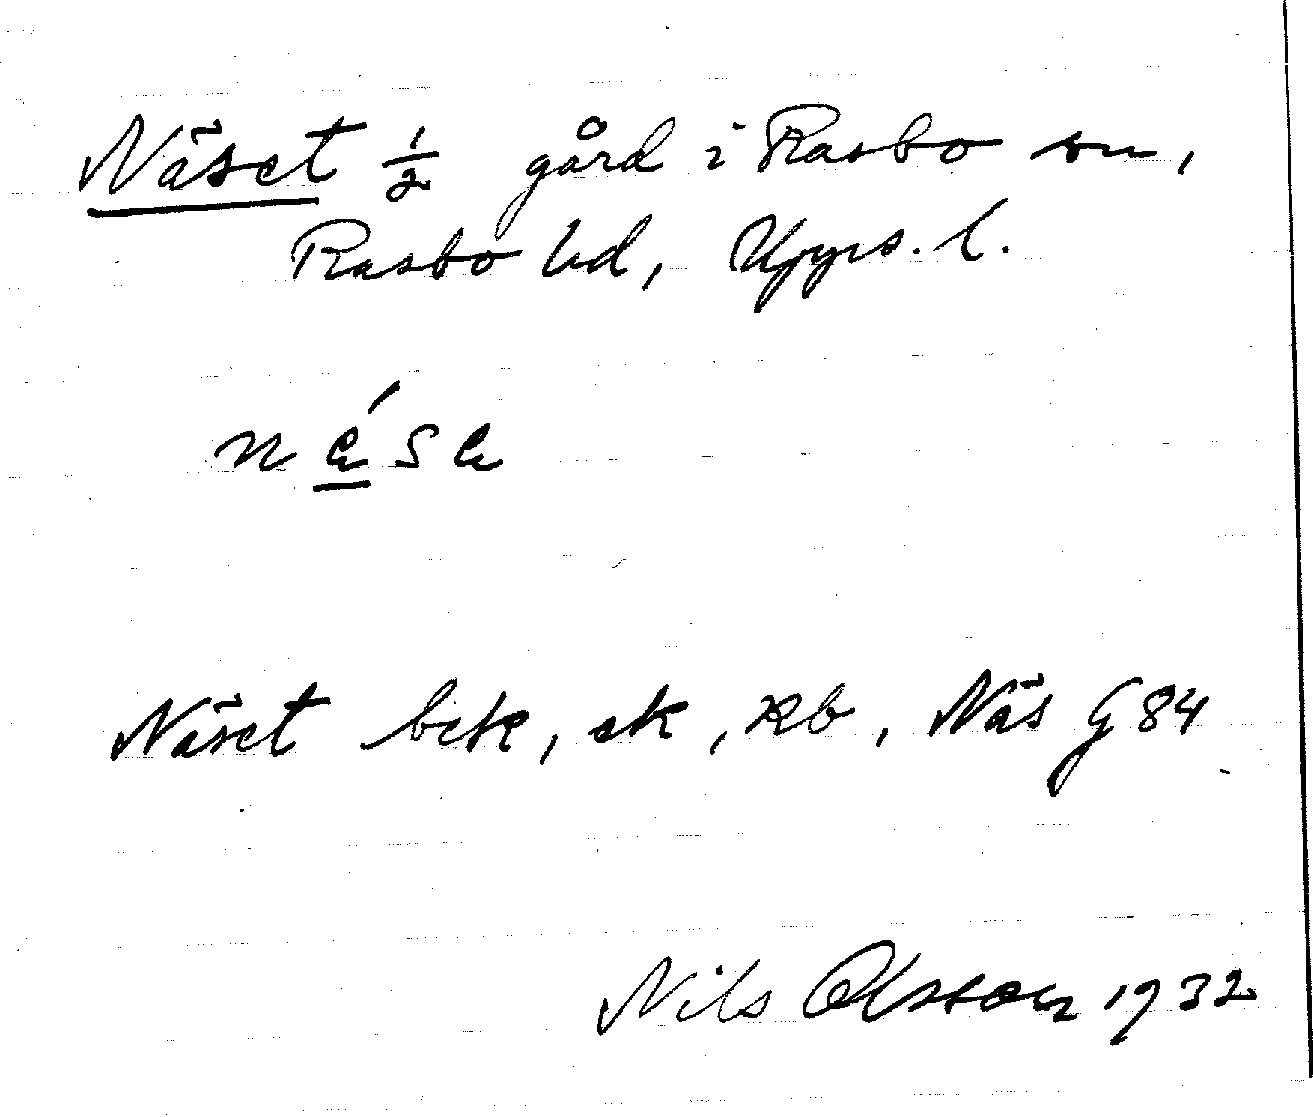 Näset ½ gård i Rasbo sn,
Rasbo hd, Upps. l.
Näset bck, ek, kb, Näs G 84
Nils Olsson 1932